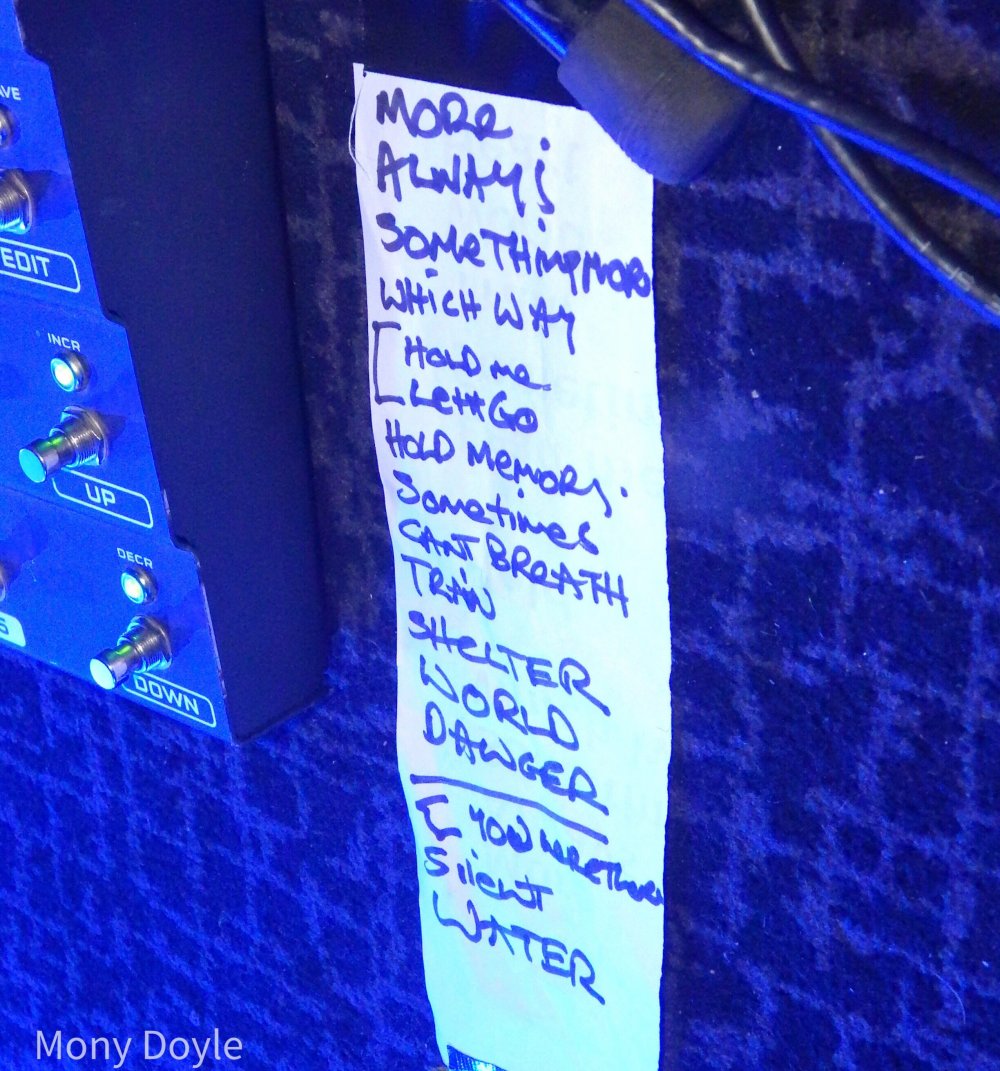 AVE
EDIT
INCR
UP
DECR
DOWN
S
MORE
ALWAYS
SOMETHING MORE
WHICH WAY
[ HOLD me
Let Go
HOLD MEMORY.
Sometimes
CANT BREATH
TRAIN
SHELTER
WORLD
DANGER
[ YOU WERE THERE
Silent
WATER
Mony Doyle